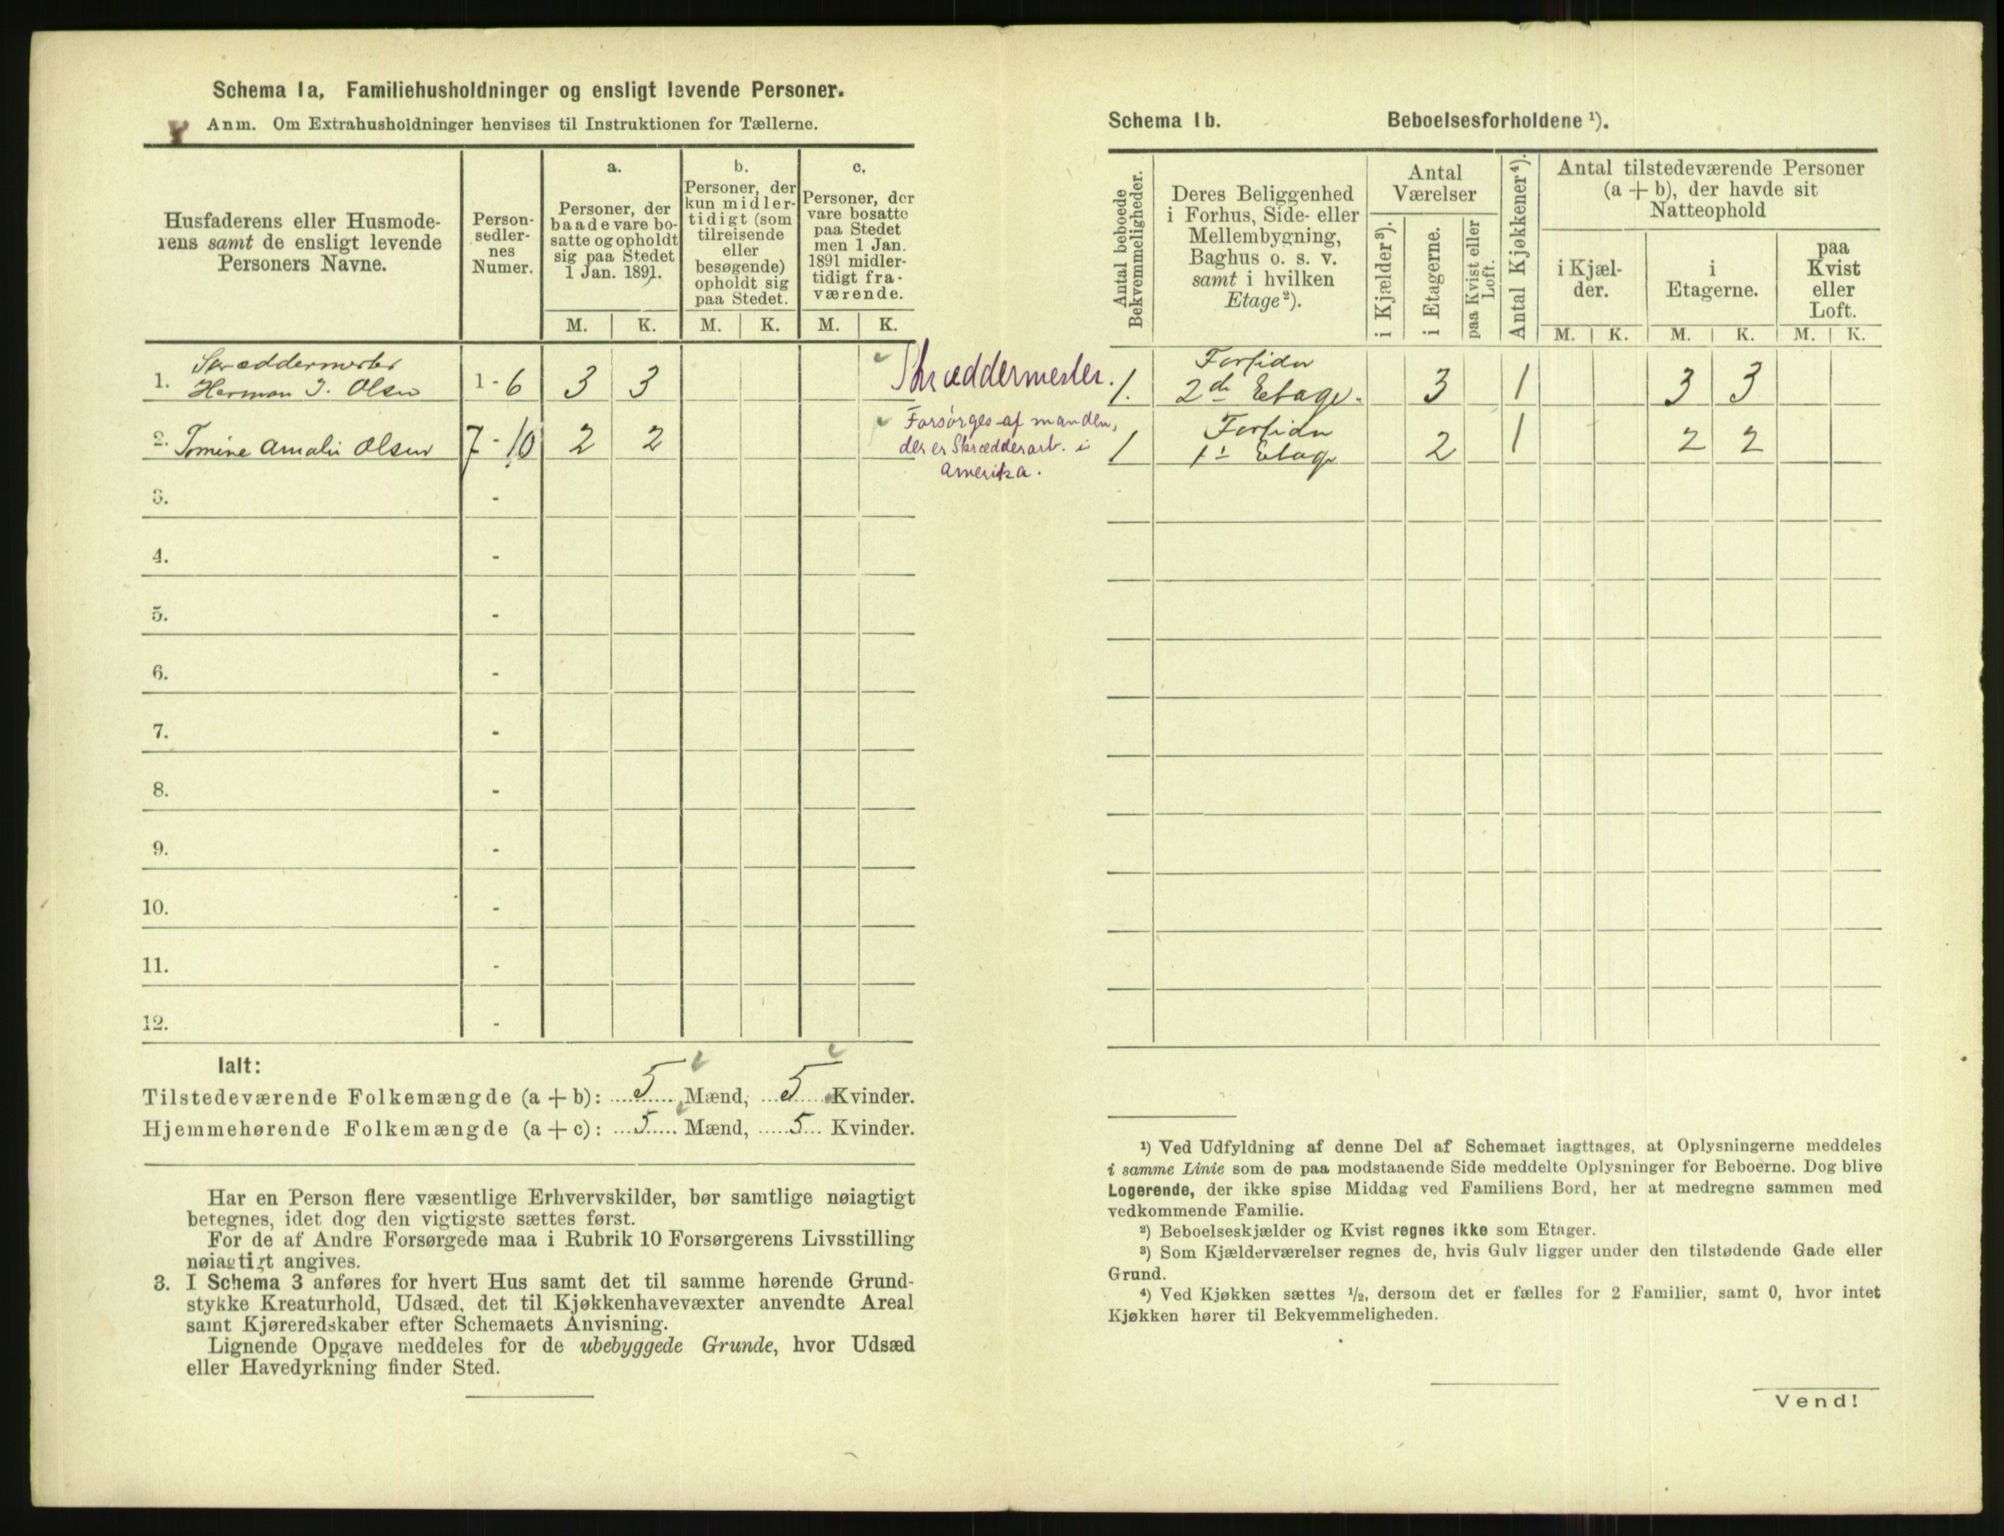 Schema 1a. Familiehusholdninger og ensligt levende Personer.
Anm. Om Extrahusholdninger henvises til Instruktionen for Tællerne.
Husfaderens eller Husmode-
rens samt de ensligt levende
Personers Navne.
Person-
sedler-
nes
Numer.
a.
Personer, der
baade vare bo-
satte og opholdt
sig paa Stedet
1 Jan. 1891.
M. K.
b.
Personer, der
kun midler-
tidigt (som
tilreisende
eller
besøgende)
opholdt sig
paa Stedet.
M. K.
c.
Personer, der
vare bosatte
paa Stedet
men 1 Jan.
1891 midler-
tidigt fra-
værende.
M. K.
Skræddermester
1. Herman J. Olsen 1 - 6 3 3 Skræddermester.
2. Tomine Amalie Olsen 7 - 10 2 2 Forsørges af manden,
der er Skrædderarb. i
Amerika.
3. -
4. -
5. -
6. -
7. -
8. -
9. -
10. -
11. -
12. -
Ialt:
Tilstedeværende Folkemængde (a + b): 5 Mænd, 5 Kvinder.
Hjemmehørende Folkemængde (a + c): 5 Mænd, 5 Kvinder.
Har en Person flere væsentlige Erhvervskilder, bør samtlige nøiagtigt
betegnes, idet dog den vigtigste sættes først.
For de af Andre Forsørgede maa i Rubrik 10 Forsørgerens Livsstilling
nøiagtigt angives.
3. I Schema 3 anføres for hvert Hus samt det til samme hørende Grund-
stykke Kreaturhold, Udsæd, det til Kjøkkenhavevæxter anvendte Areal
samt Kjøreredskaber efter Schemaets Anvisning.
Lignende Opgave meddeles for de ubebyggede Grunde, hvor Udsæd
eller Havedyrkning finder Sted.
Schema 1b. Beboelsesforholdene ¹).
Antal beboede
Bekvemmeligheder.
Deres Beliggenhed
i Forhus, Side- eller
Mellembygning,
Baghus o. s. v.
samt i hvilken
Etage ²).
Antal
Værelser
i Kjælder ³).
i Etagerne.
paa Kvist eller
Loft.
Antal Kjøkkener ⁴).
Antal tilstedeværende Personer
(a + b), der havde sit
Natteophold
i Kjæl-
der.
M. K.
i
Etagerne.
M. K.
paa
Kvist
eller
Loft.
M. K.
Forsiden
1. 2den Etage. 3 1 3 3
Forsiden
1 1ste Etage 2 1 2 2
¹) Ved Udfyldning af denne Del af Schemaet iagttages, at Oplysningerne meddeles
i samme Linie som de paa modstaaende Side meddelte Oplysninger for Beboerne. Dog blive
Logerende, der ikke spise Middag ved Familiens Bord, her at medregne sammen med
vedkommende Familie.
²) Beboelseskjælder og Kvist regnes ikke som Etager.
³) Som Kjælderværelser regnes de, hvis Gulv ligger under den tilstødende Gade eller
Grund.
⁴) Ved Kjøkken sættes ½, dersom det er fælles for 2 Familier, samt 0, hvor intet
Kjøkken hører til Bekvemmeligheden.
Vend!